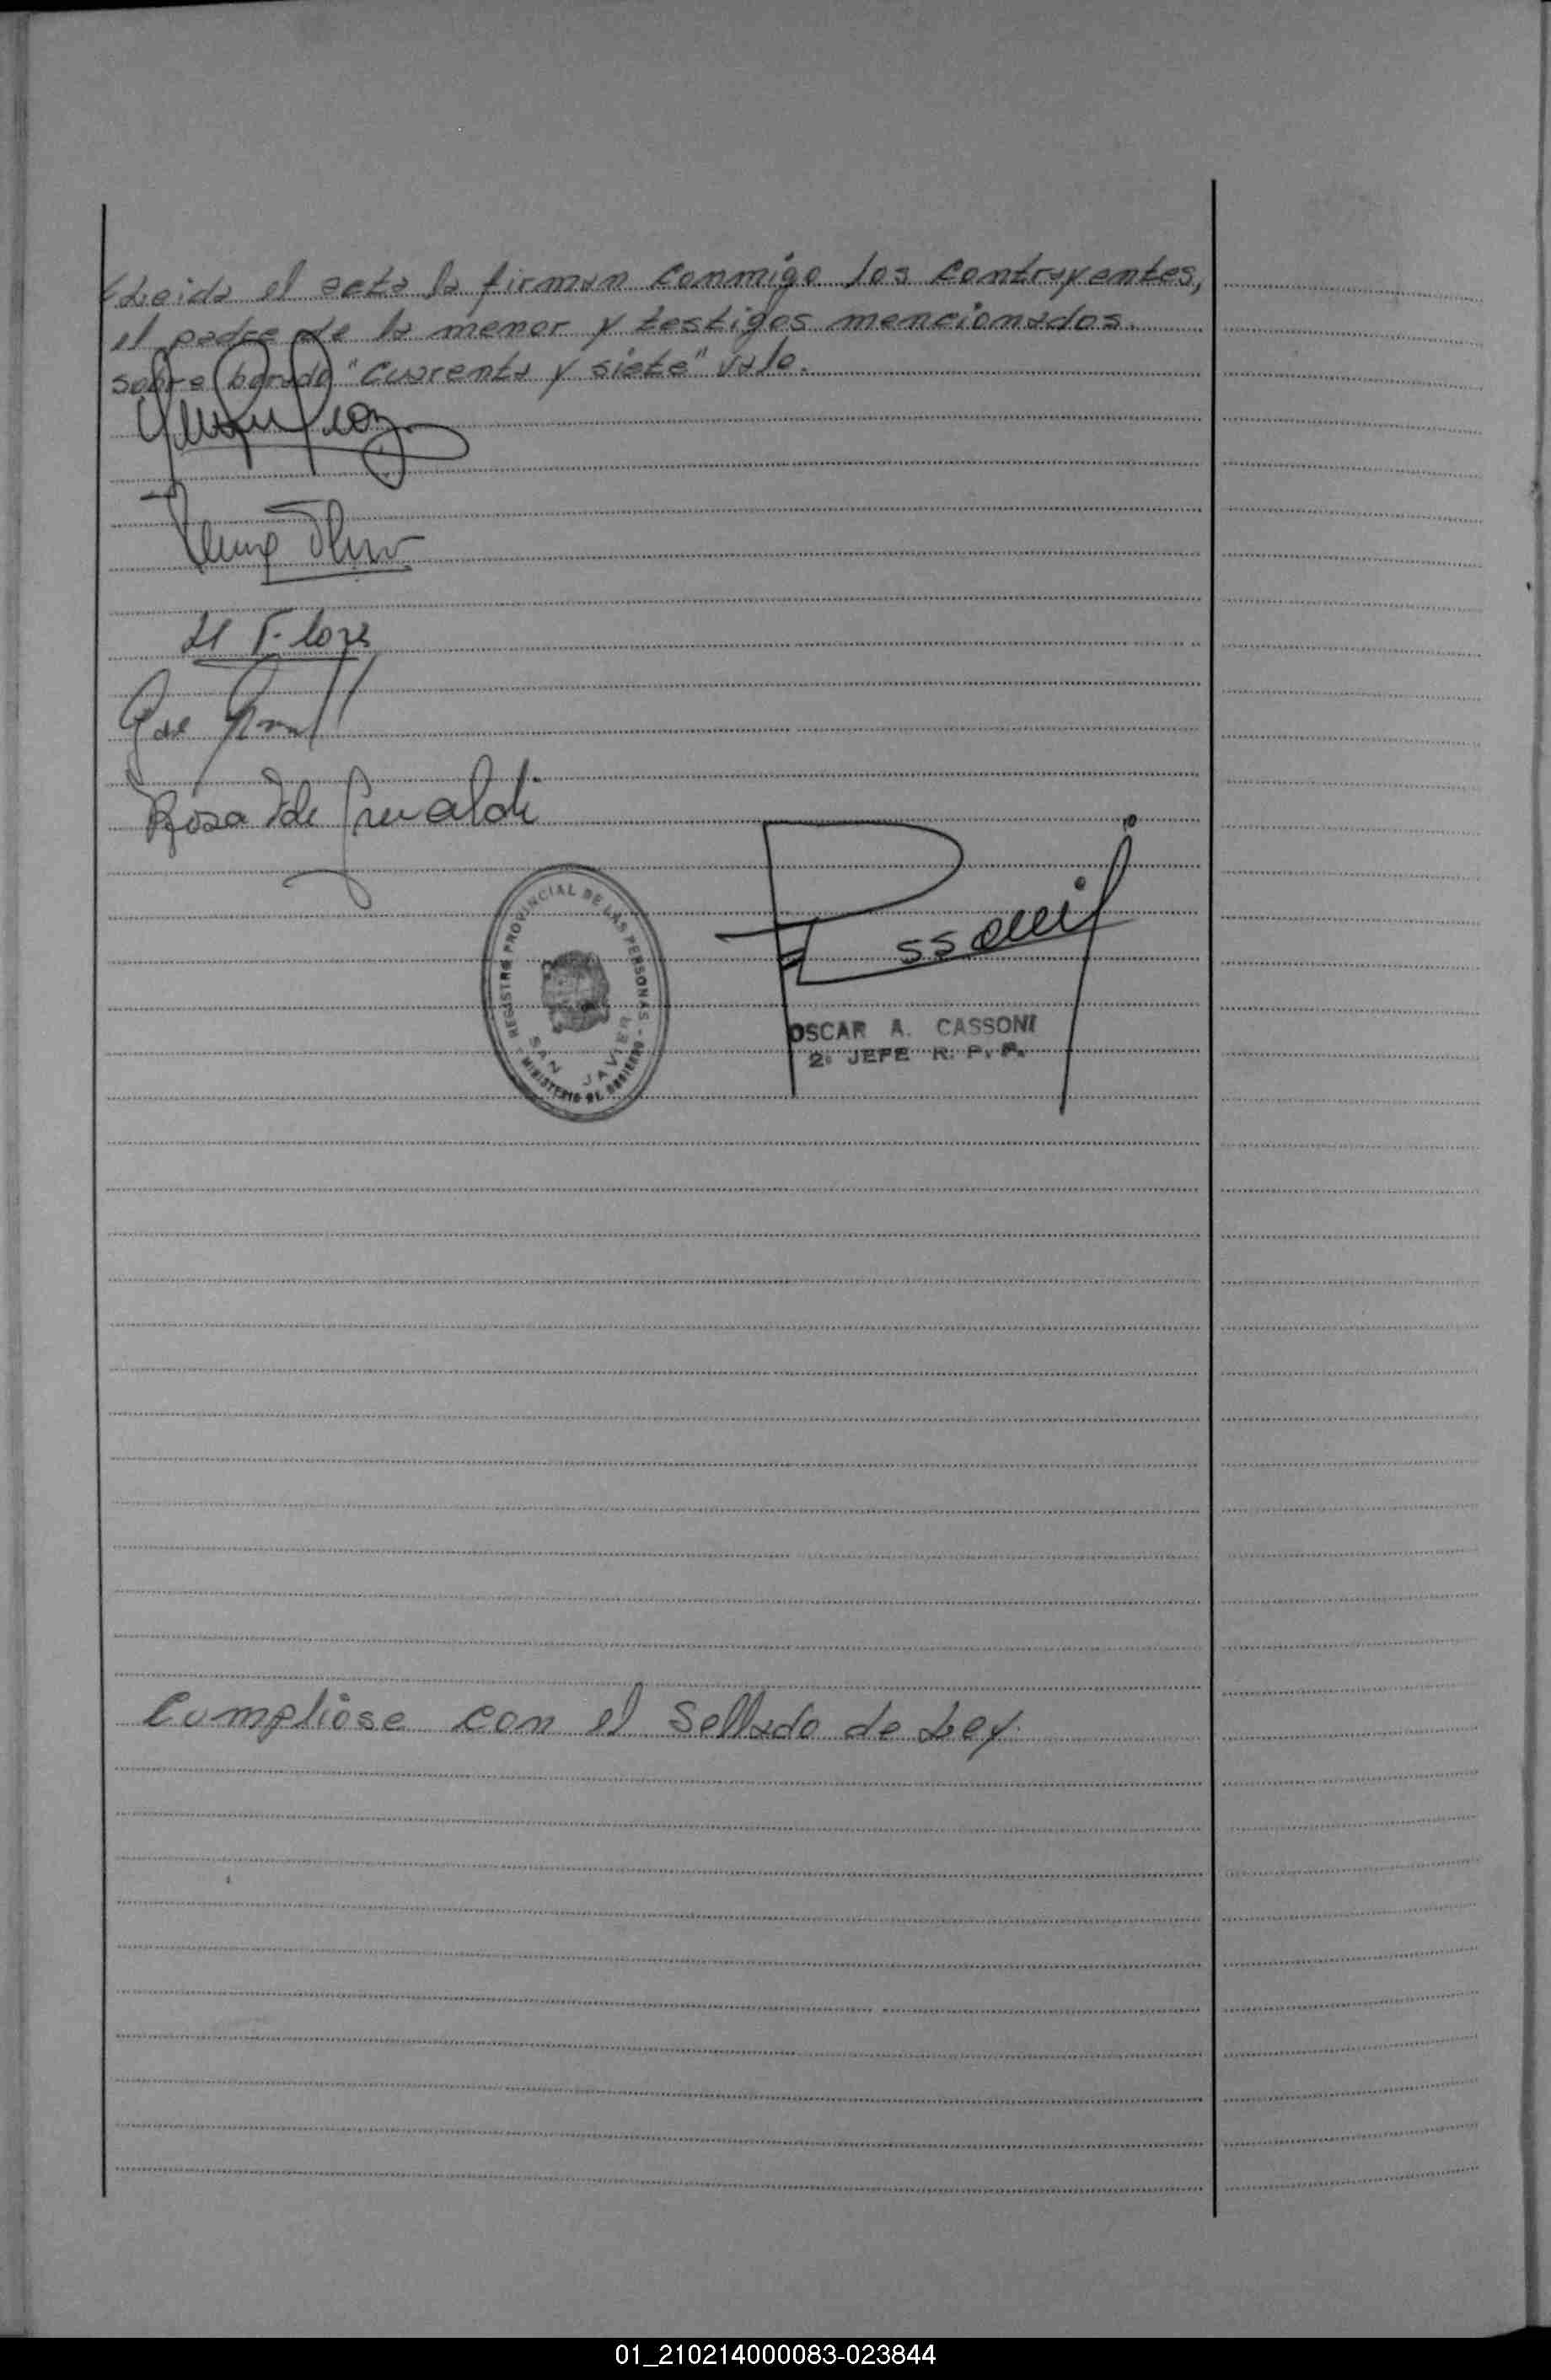 Leida el acta la firman conmigo los contrayentes,
el padre de la menor y testigos mencionados.
sobre borado "cuarenta y siete" vale.
H Flores
Rosa de Grivaldi
REGISTRO PROVINCIAL DE LAS PERSONAS - MINISTERIO DE GOBIERNO
SAN JAVIER
OSCAR A. CASSONI
2º JEFE R. P. P.
Cumplióse con el sellado de Ley.
01_210214000083-023844